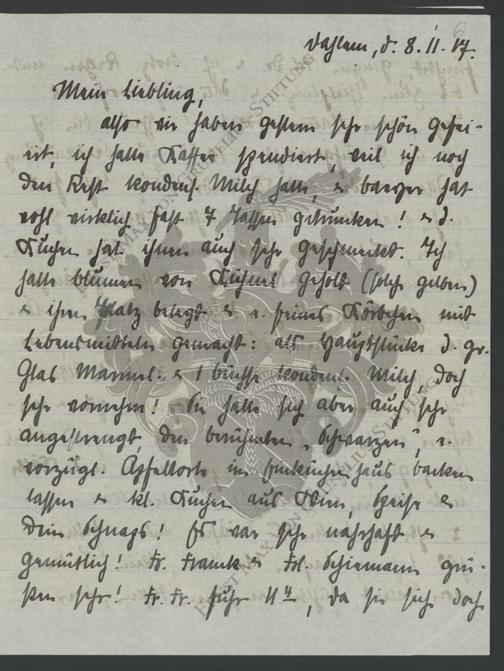 Dahlem, d. 8. 11. 17.
Mein Liebling,
also wir haben gestern sehr schön gefei-
ert, ich hatte Kaffee spendiert, weil ich noch
den Rest kondens. Milch hatte, u. baeyer hat
wohl wirklich fast 7 Tassen getrunken! u. d.
Kuchen hat ihnen auch sehr geschmeckt. Ich
hatte blumen von geholt (solche gelben)
u. ihren Platz belegt u. e. feines Körbchen mit
Lebensmitteln gemacht: als Hauptstücke d. gr.
Glas Marmel. u. 1 büchse kondens. Milch, doch
sehr vornehm! Sie hatte sich aber auch sehr
angestrengt den berühmten "Schwarzen", e.
vorzügl. Apfeltorte im backen
lassen u. kl. Kuchen aus Wien, Speise u.
Dein Schnaps! Es war sehr nahrhaft u.
gemütlich! Fr. Franck u. Frl. Schiemann grü-
ßen sehr! Fr. Fr. fuhr 11, da sie sich doch